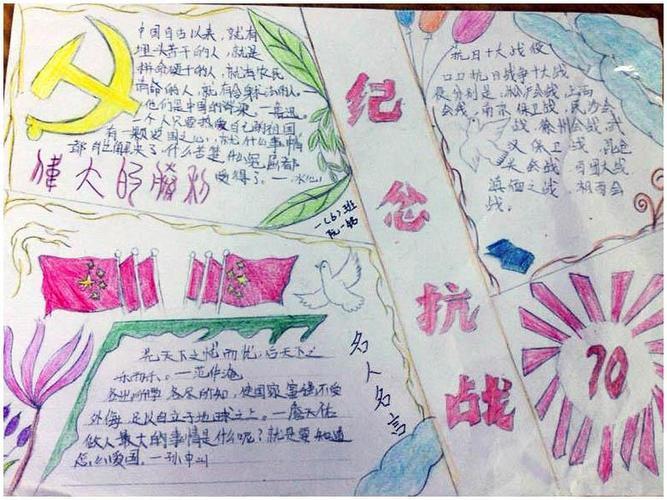 中国自古以来，就有
埋头苦干的人，就是
拼命硬干的人，就为农民
的人，就有舍身求法的人。
他们是中国的脊梁 —鲁迅
一个人只要热爱自己的祖国
有一颗爱国之心，就什么事情
都 解决了什么苦楚，什么冤屈都
受得了。—冰心
伟大的胜利
一（6）班
阮一铭
纪念抗战
抗日十大战役
抗日战争十大战
役分别是：淞沪会战，上海
会战，南京保卫战，会
战，徐州会战，武
汉保卫战，昆仑
关会战，百团大战
滇缅之战，湘西会
战。
70
名人名言
先天下之忧而忧，后天下之
乐而乐。—范仲淹
各出所学，各尽所知，使国家富强不受
外侮，足以自立于地球之上。—詹天佑
做人最大的事情是什么呢？就是要知道
怎么爱国。—孙中山